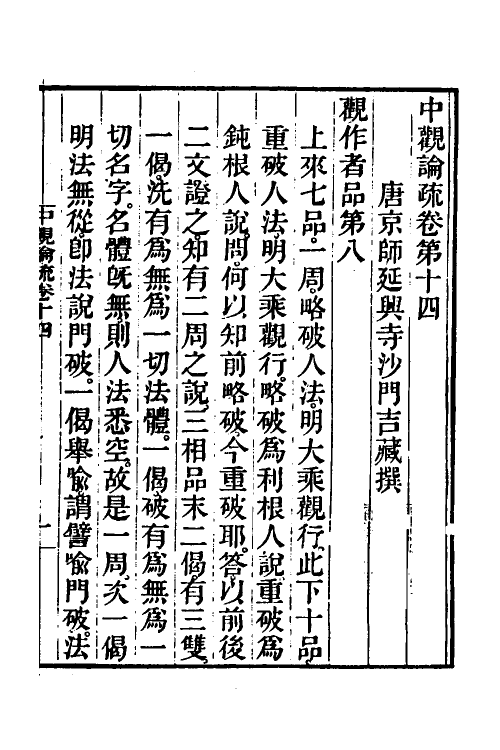 中觀論疏卷第十四
唐京師延興寺沙門吉藏撰
觀作者品第八
上來七品。一周。略破人法。明大乘觀行。此下十品。
重破人法。明大乘觀行。略破爲利根人說。重破爲
鈍根人說。問。何以知前略破。今重破耶。答。以前後
二文證之。知有二周之說。三相品末二偈。有三雙。
一偈。洗有爲無爲一切法體。一偈。破有爲無爲一
切名字。名體旣無則人法悉空。故是一周。次一偈
明法無從。卽法說門破。一偈舉喩。謂譬喩門破。法
中觀論疏卷十四
一